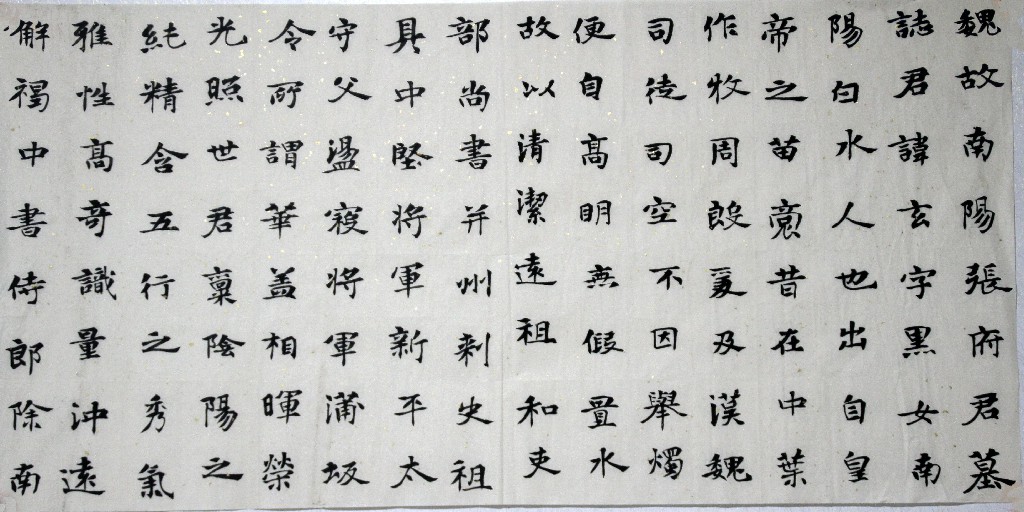 魏故南陽張府君墓
誌君諱玄字黑女南
陽白水人也出自皇
帝之苗裔昔在中葉
作牧周殷爰及漢魏
司徒司空不因舉燭
便自高明無假置水
故以清潔遠祖和吏
部尚書并州刺史祖
具中堅將軍新平太
守父盪寇將軍蒲坂
令所謂華盖相暉榮
光照世君稟陰陽之
純精含五行之秀氣
雅性高奇識量沖遠
解褐中書侍郎除南